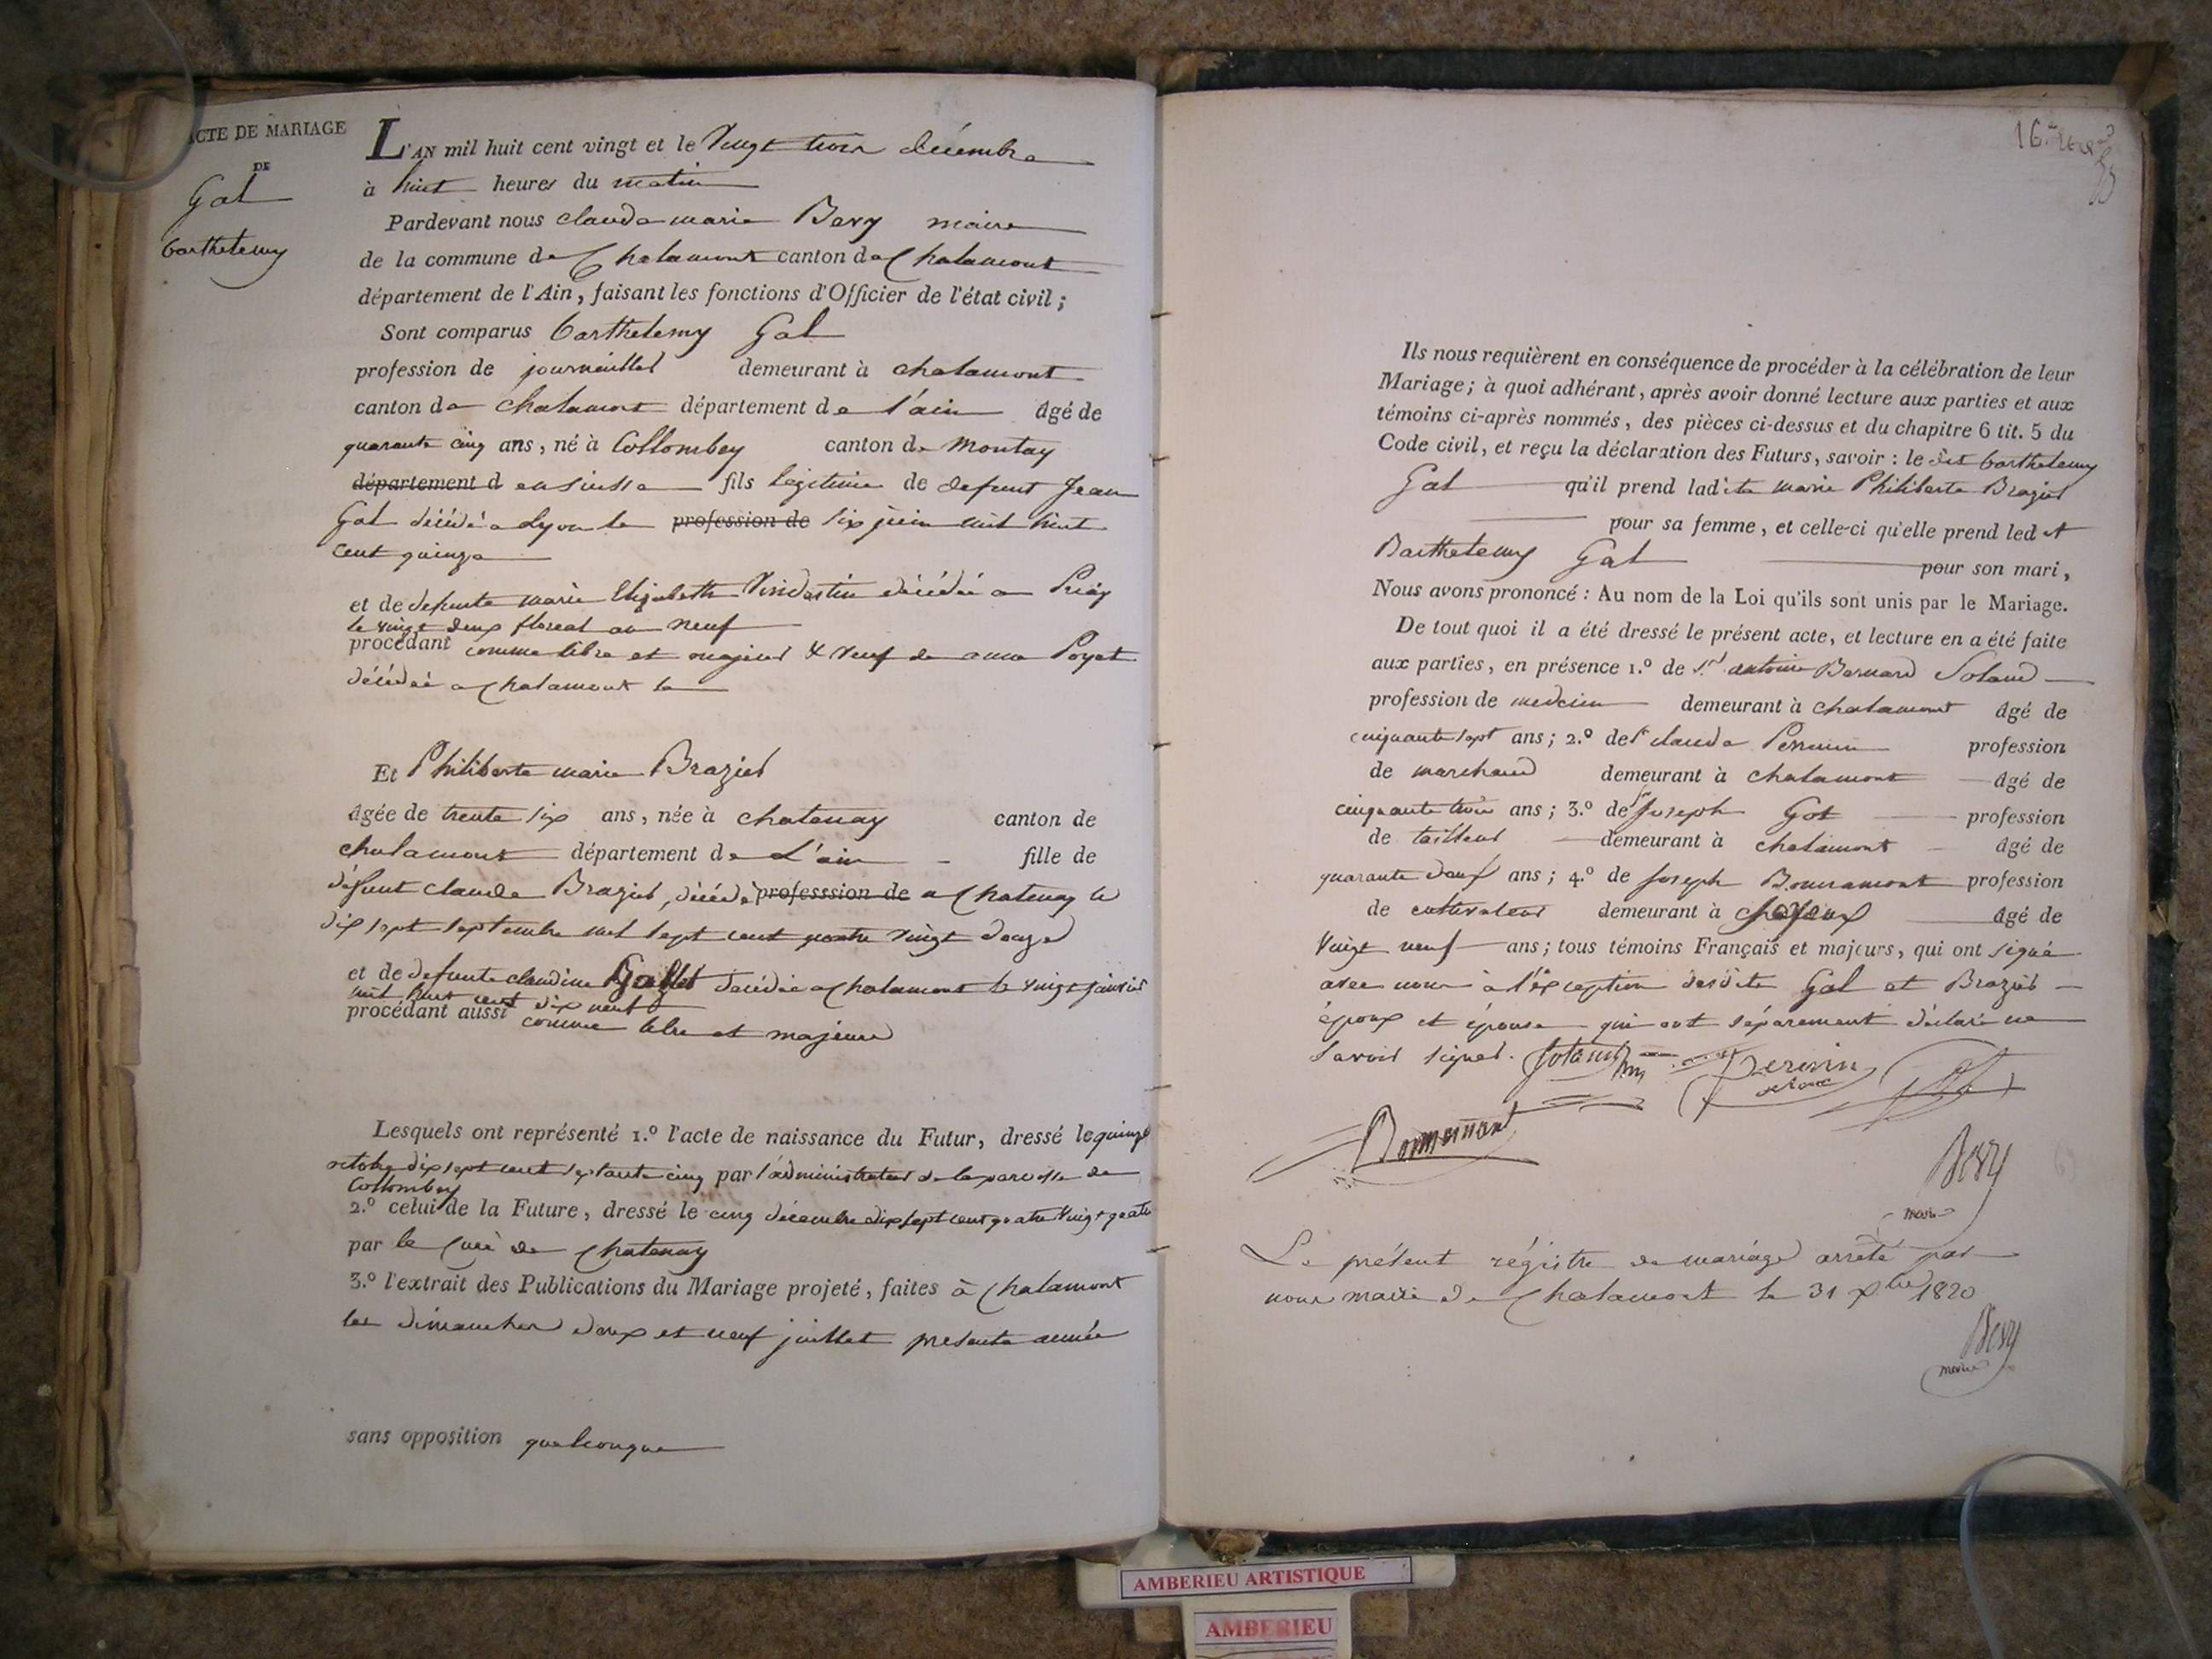 ACTE DE MARIAGE
DE
Gal
barthelemy
L'AN mil huit cent vingt et le vingt trois décembre
à huit heures du matin
Pardevant nous claude marie Bery maire
de la commune de Chalamont canton de Chalamont
département de l'Ain, faisant les fonctions d'Officier de l'état civil ;
Sont comparus barthelemy Gal
profession de journaillier demeurant à chalamont
canton de chalamont département de l'ain âgé de
quarante cinq ans, né à Collombey canton de Montay
département d en suisse fils légitime de defunt Jean
Gal décédé a Lyon le profession de six juin mil huit
cent quinze
et de defunte marie Elizabeth décédée a
le vingt deux floreal an neuf
procédant comme libre et majeur & veuf de anne Poyet
décédée a Chalamont le
Et Philiberte marie Brazier
âgée de trente six ans, née à chatenay canton de
chalamont département de L'ain fille de
défunt claude Brazier, décédé professsion de a Chatenay le
dix sept septembre mil sept cent quatre vingt douze
et de defunte claudine décédée a Chalamont le vingt janvier
mil huit cent dix neuf
procédant aussi comme libre et majeure
Lesquels ont représenté 1.º l'acte de naissance du Futur, dressé le quinze
octobre dix sept cent septante cinq par l'administrateur de la paroisse de
Collombey
2.º celui de la Future, dressé le cinq décembre dix sept cent quatre vingt quatre
par le Curé de Chatenay
3.º l'extrait des Publications du Mariage projeté, faites à Chalamont
les dimanches deux et neuf juillet presente année
sans opposition quelconque
Ils nous requièrent en conséquence de procéder à la célébration de leur
Mariage ; à quoi adhérant, après avoir donné lecture aux parties et aux
témoins ci-après nommés, des pièces ci-dessus et du chapitre 6 tit. 5 du
Code civil, et reçu la déclaration des Futurs, savoir : le dit barthelemy
Gal qu'il prend ladite marie Philiberte Brazier
pour sa femme, et celle-ci qu'elle prend led it
Barthelemy Gal pour son mari,
Nous avons prononcé : Au nom de la Loi qu'ils sont unis par le Mariage.
De tout quoi il a été dressé le présent acte, et lecture en a été faite
aux parties, en présence 1.º de Sr antoine Bernard
profession de medecin demeurant à chalamont âgé de
cinquante sept ans ; 2.º de Sr claude Perruin profession
de marchand demeurant à chalamont âgé de
cinquante trois ans ; 3.º de Sr Joseph Got profession
de tailleur demeurant à chalamont âgé de
quarante deux ans ; 4.º de Joseph profession
de cultivateur demeurant à âgé de
vingt neuf ans ; tous témoins Français et majeurs, qui ont signé
avec nous à l'exception desdits Gal et Brazier
époux et épouse qui ont séparement déclaré ne
savoir signer.
Bery
maire
Le présent régistre de mariage arrêté par
nous maire de Chalamont le 31 Xbre 1820
Bery
maire
AMBERIEU ARTISTIQUE
AMBERIEU